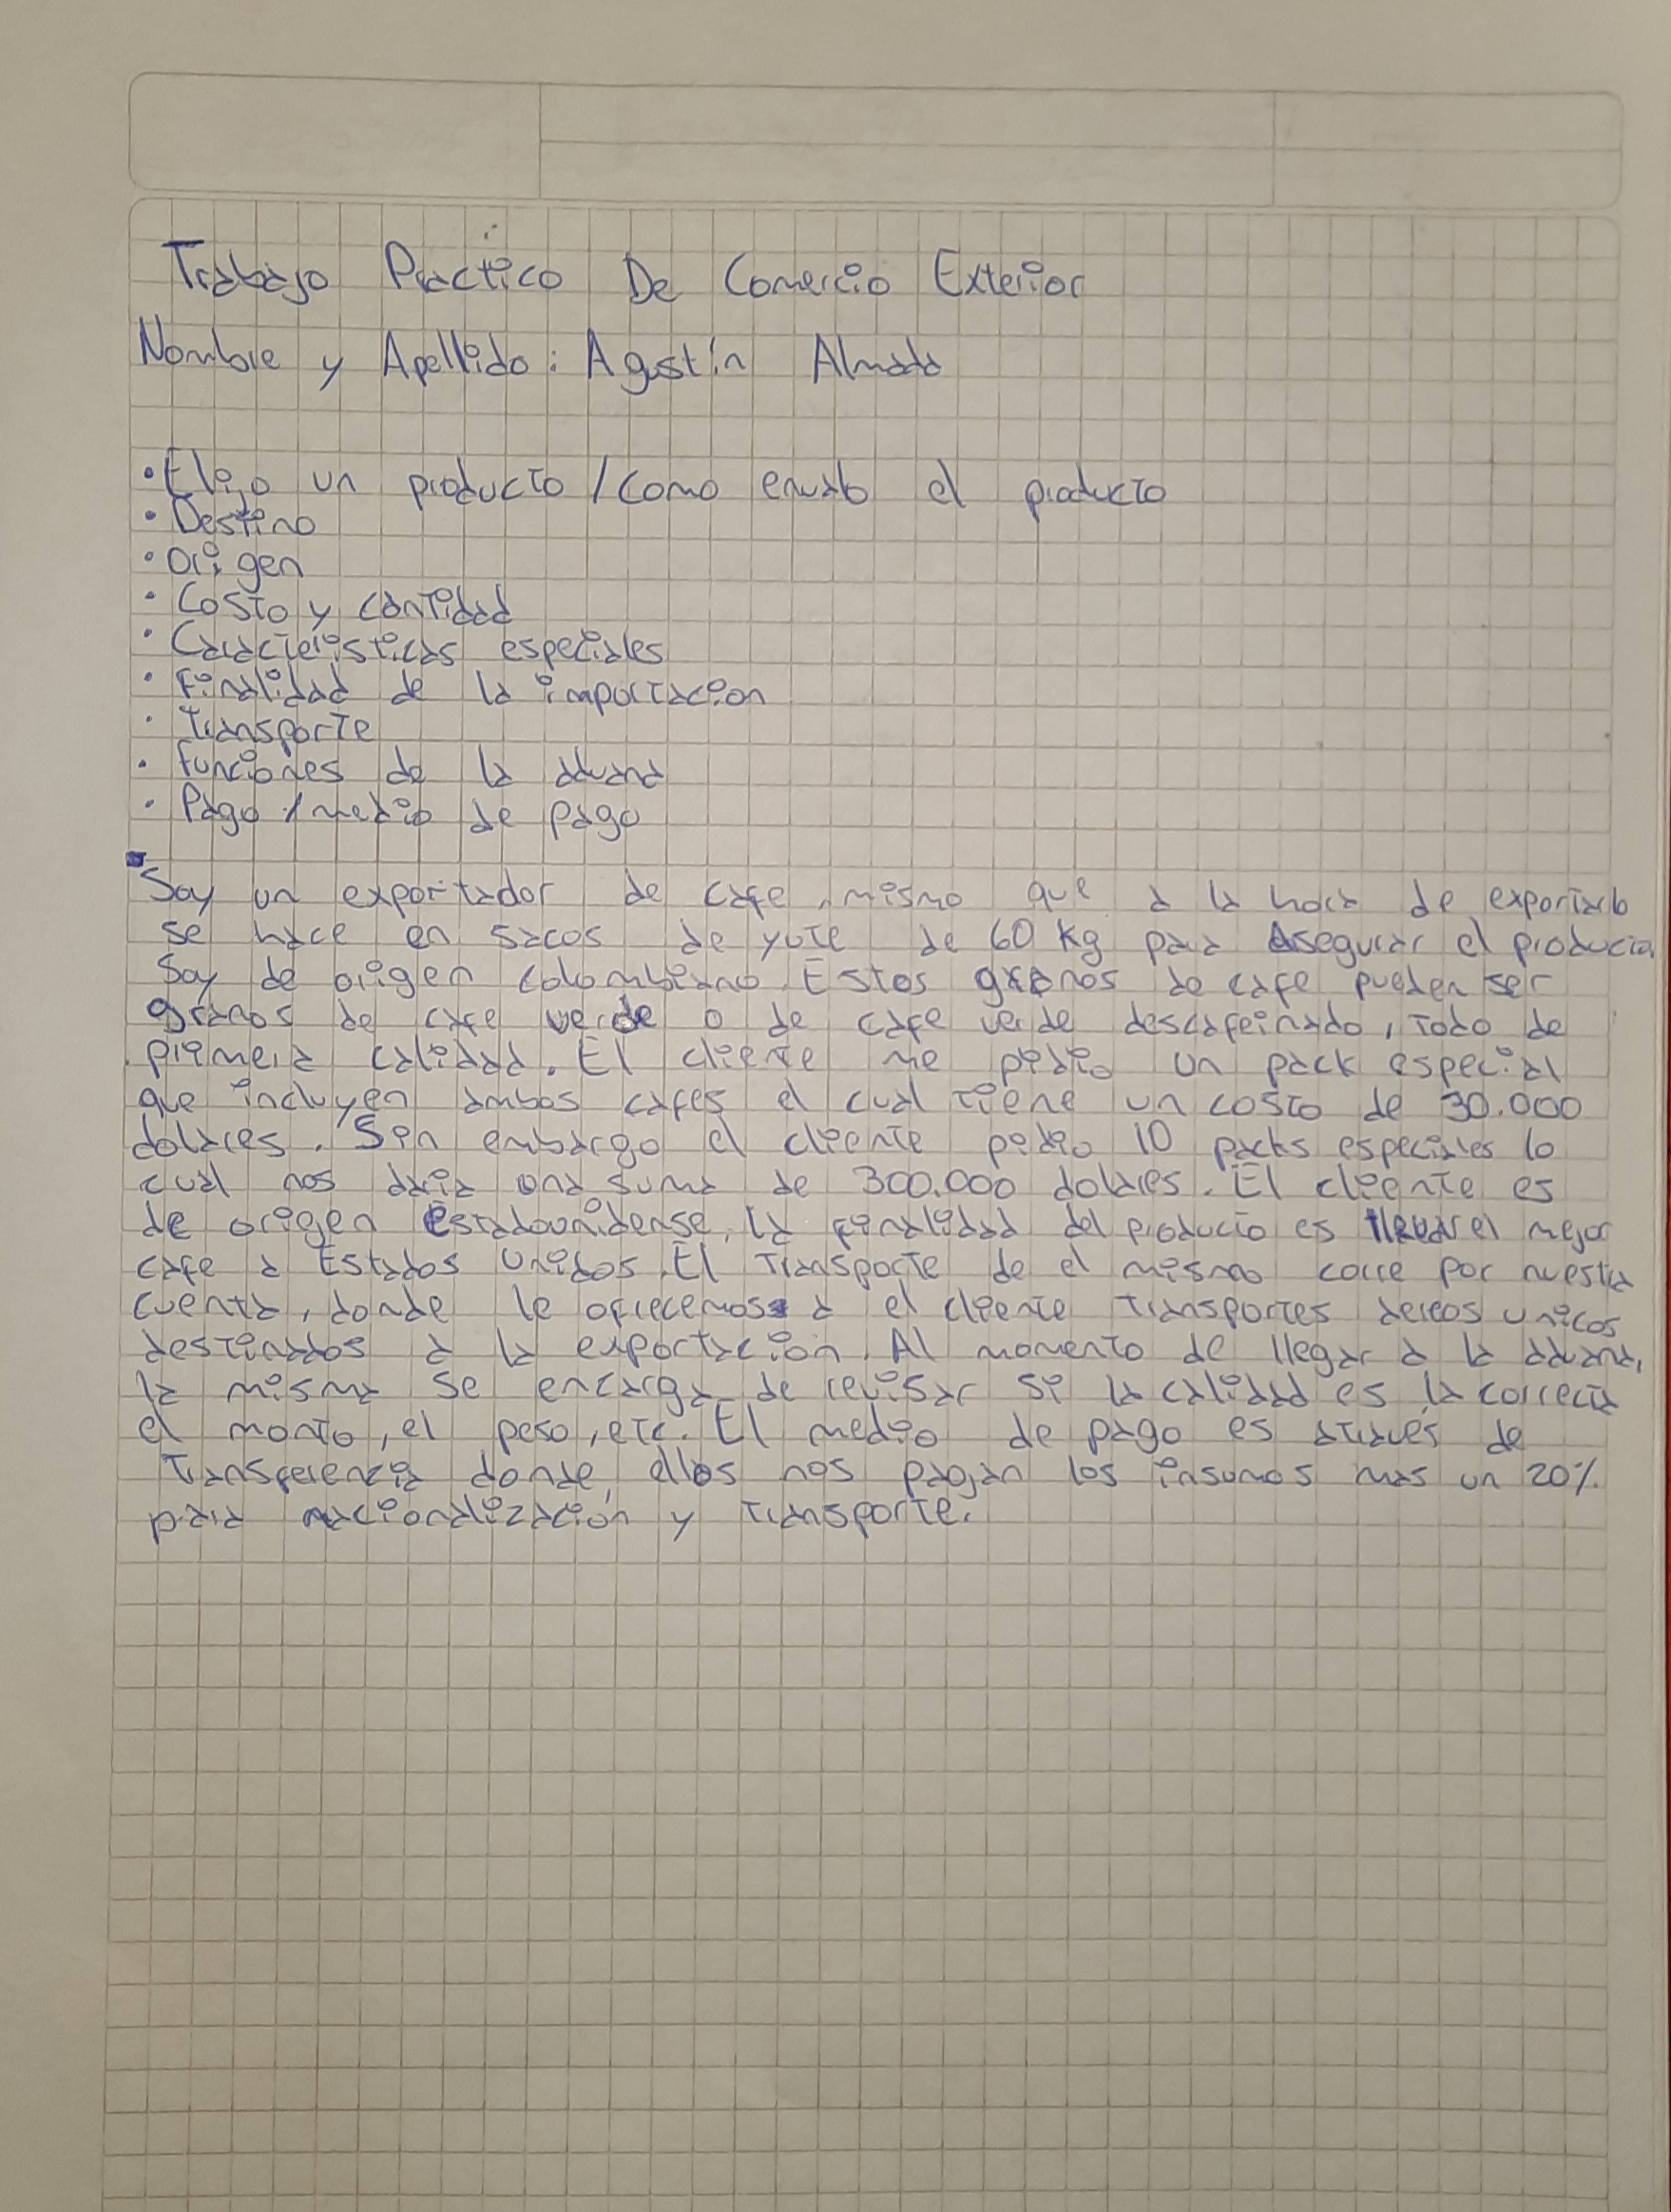 Trabajo Practico De Comercio Exterior
Nombre y Apellido: Agustín Almada
• Elijo un producto / como envialo el producto
• Destino
• Origen
• Costo y cantidad
• Caracteristicas especiales
• Finalidad de la importacion
• Transporte
• Funciones de la aduana
• Pago / medio de pago
Soy un exportador de cafe, mismo que a la hora de exportarlo
se hace en sacos de yute de 60 kg para Asegurar el producto.
Soy de origen colombiano. Estos granos de cafe pueden ser
granos de cafe verde o de cafe verde descafeinado, todo de
primera calidad. El cliente me pidio un pack especial
que incluyen ambos cafes el cual tiene un costo de 30.000
dolares. Sin embargo el cliente pidio 10 packs especiales lo
cual nos daria una suma de 300.000 dolares. El cliente es
de origen estadounidense, la finalidad del producto es llevar el mejor
cafe a Estados Unidos. El transporte de el mismo corre por nuestra
cuenta, donde le ofrecemos a el cliente transportes aereos unicos
destinados a la exportacion. Al momento de llegar a la aduana,
la misma se encarga de revisar si la calidad es la correcta
el monto, el peso, etc. El medio de pago es através de
transferencia donde, ellos nos pagan los insumos mas un 20%
para nacionalización y transporte.